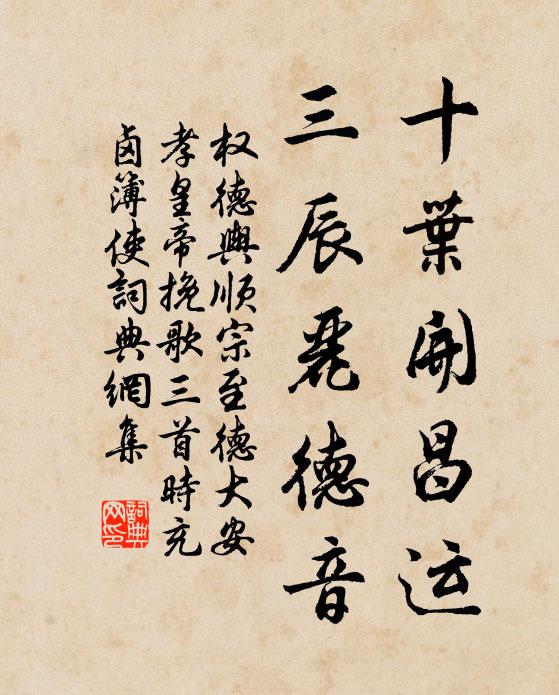 十葉開昌运
三辰麗德音
权德輿顺宗至德大安
孝皇帝挽歌三首時充
卤簿使詞典網集
詞典网印